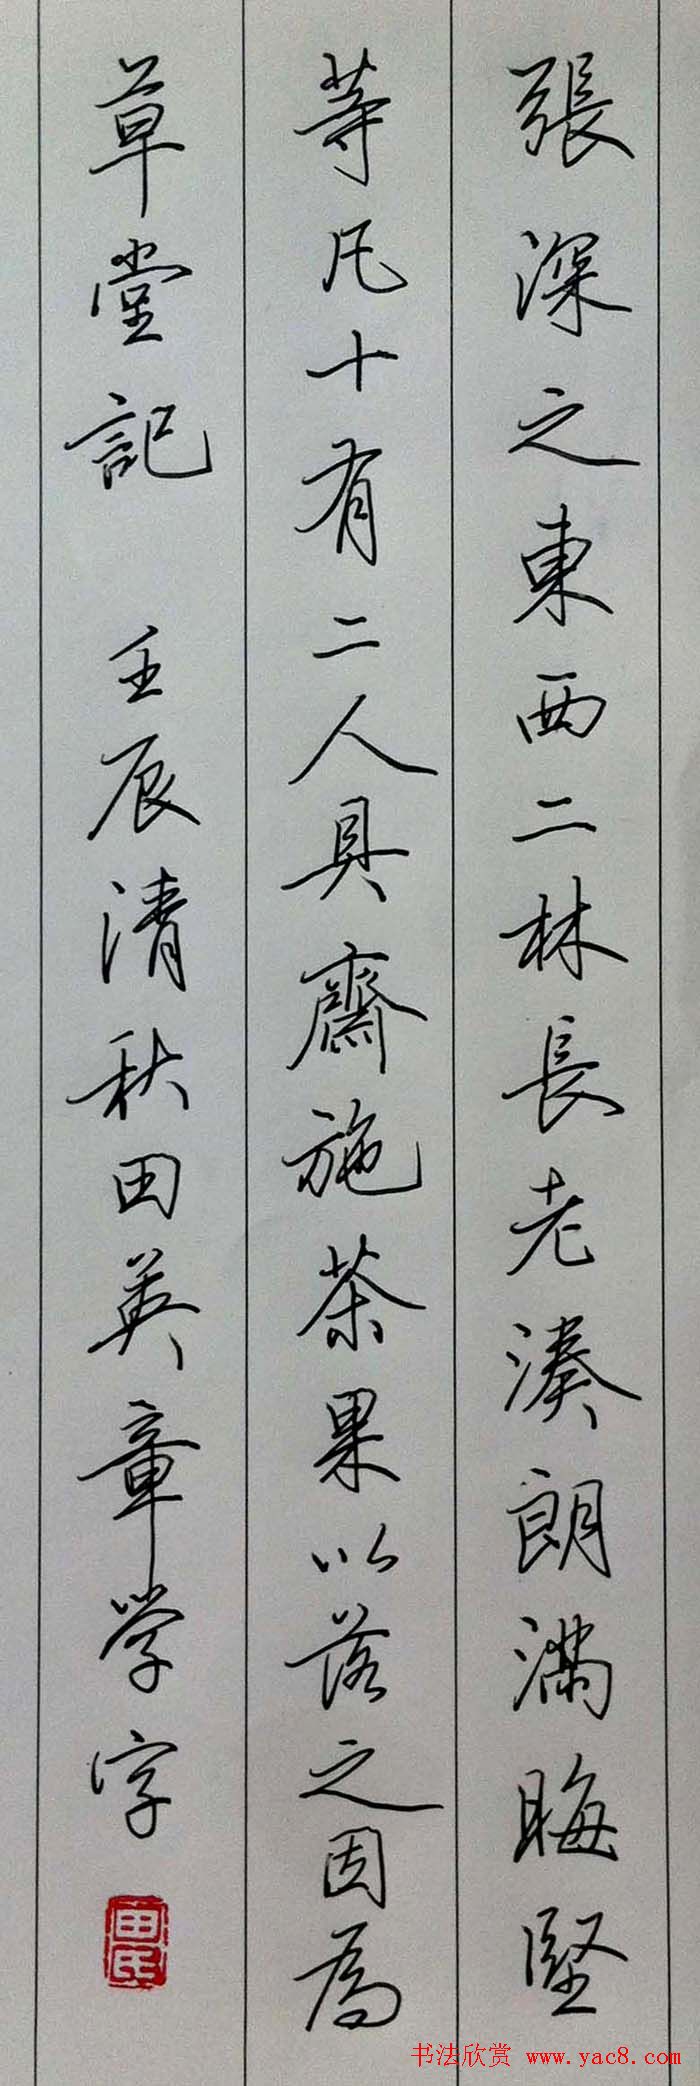 張深之東西二林長老湊朗滿晦堅
等凡十有二人具齋施茶果以落之因為
草堂記 壬辰清秋田英章學字
田氏
书法欣赏 www.yac8.com